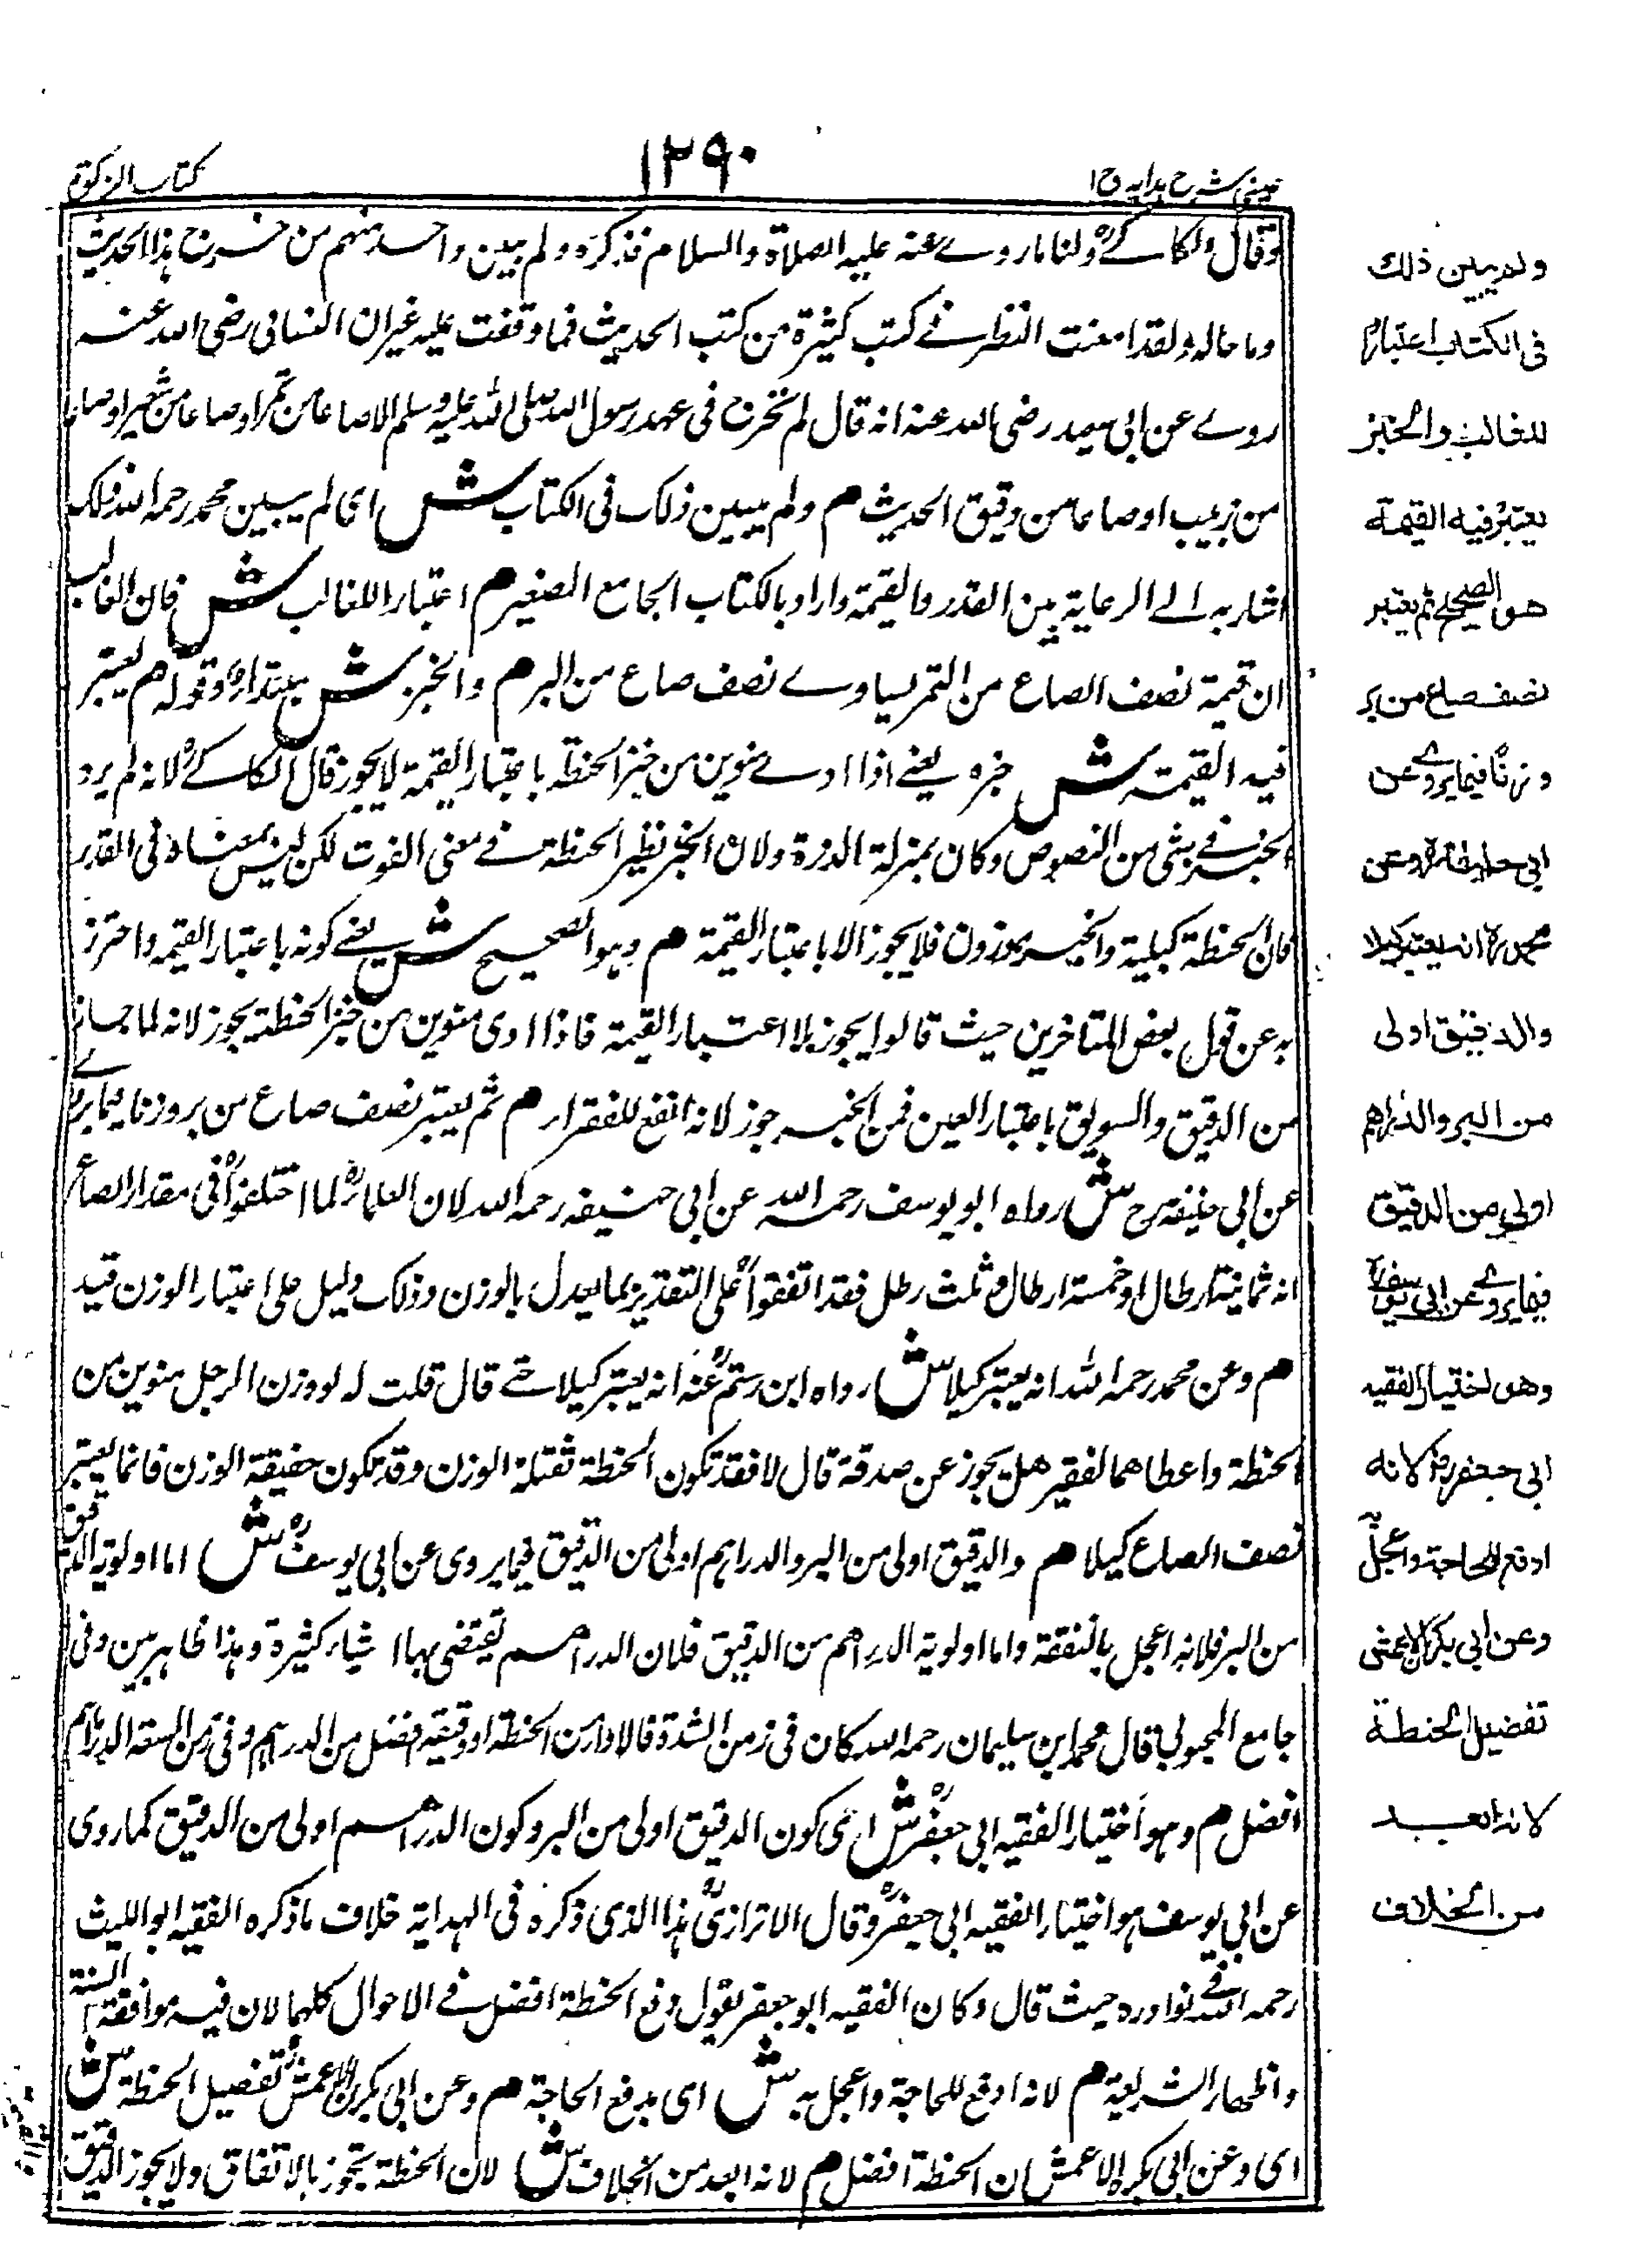 عينى شرح هدايه ج ١
١٢٩٠
كتاب الزكوة
وقال الكاكى ولنا ما روى عنه عليه الصلاة والسلام فذكره ولم يبين واحد منهم من خرج هذا الحديث
وما حاله ولقد امعنت النظر فى كتب كثيرة من كتب الحديث فما وقفت عليه غير ان النسائى رضى الله عنه
روى عن ابى سعيد رضى الله عنه انه قال لم نخرج فى عهد رسول الله صلى الله عليه وسلم الا صاعا من تمر او صاعا من شعير او صاعا
من زبيب او صاعا من دقيق الحديث م ولم يبين ذلك فى الكتاب ش اى لم يبين محمد رحمه الله ذلك
اشار به الى الرعاية بين القدر والقيمة واراد بالكتاب الجامع الصغير م اعتبارا للغالب ش فان الغالب
ان قيمة نصف الصاع من التمر يساوى نصف صاع من البر م والخبز ش مبتدأ وقوله م يعتبر
فيه القيمة ش خبره يعنى اذا ادى منوين من خبز الحنطة باعتبار القيمة لا يجوز قال الكاكى لانه لم يرد
الخبز فى شئ من النصوص وكان بمنزلة الذرة ولان الخبز نظير الحنطة فى معنى القوت لكن ليس بمعناه فى القدر
فان الحنطة كيلية والخبز موزون فلا يجوز الا باعتبار القيمة م وهو الصحيح ش يعنى كونه باعتبار القيمة واحترز
به عن قول بعض المتاخرين حيث قالوا يجوز بلا اعتبار القيمة فاذا ادى منوين من خبز الحنطة يجوز لانه لما جاز
من الدقيق والسويق باعتبار العين فمن الخبز يجوز لانه انفع للفقراء م ثم يعتبر نصف صاع من بر وزنا فيما يروى
عن ابى حنيفة رح ش رواه ابو يوسف رحمه الله عن ابى حنيفه رحمه الله لان العلماء لما اختلفوا فى مقدار الصاع
انه ثمانية ارطال او خمسة ارطال وثلث رطل فقد اتفقوا على التقدير بما يعدل بالوزن وذلك دليل على اعتبار الوزن فيه
م وعن محمد رحمه الله انه يعتبر كيلا ش رواه ابن رستم عنه انه يعتبر كيلا حتى قال قلت له لو وزن الرجل منوين من
الحنطة واعطاهما لفقير هل يجوز عن صدقة قال لا فقد تكون الحنطة ثقيلة الوزن وقد تكون خفيفة الوزن فانما يعتبر
نصف الصاع كيلا م والدقيق اولى من البر والدراهم اولى من الدقيق فيما يروى عن ابى يوسف ش اما اولوية الدقيق
من البر فلانه اعجل بالنفقة واما اولوية الدراهم من الدقيق فلان الدراهم تقتضى بها اشياء كثيرة وهذا ظاهر بين وفى
جامع المحبوبى قال محمد ابن سليمان رحمه الله كان فى زمن الشدة فالاداء من الحنطة او دقيقه افضل من الدراهم وفى زمن السعة الدراهم
افضل م وهو اختيار الفقيه ابى جعفر ش اى كون الدقيق اولى من البر وكون الدراهم اولى من الدقيق كما روى
عن ابى يوسف هو اختيار الفقيه ابى جعفر وقال الاترازى هذا الذى ذكره فى الهداية خلاف ما ذكره الفقيه ابو الليث
رحمه الله فى نوادره حيث قال وكان الفقيه ابو جعفر يقول دفع الحنطة افضل فى الاحوال كلها لان فيه موافقة السنة
واظهار الشريعة م لانه ادفع للحاجة واعجل به ش اى بدفع الحاجة م وعن ابى بكر الاعمش تفضيل الحنطة ش
اى وعن ابى بكر الاعمش ان الحنطة افضل م لانه ابعد من الخلاف ش لان الحنطة تجوز بالاتفاق ولا يجوز الدقيق
ولم يبين ذلك
فى الكتاب اعتبارا
للغالب والخبز
يعتبر فيه القيمة
هو الصحيح ثم يعتبر
نصف صاع من بر
وزنا فيما يروى عن
ابى حنيفة وعن
محمد انه يعتبر كيلا
والدقيق اولى
من البر والدراهم
اولى من الدقيق
فيما يروى عن ابى يوسف
وهو اختيار الفقيه
ابى جعفر لانه
ادفع للحاجة واعجل
وعن ابى بكر الاعمش
تفضيل الحنطة
لانه ابعد
من الخلاف